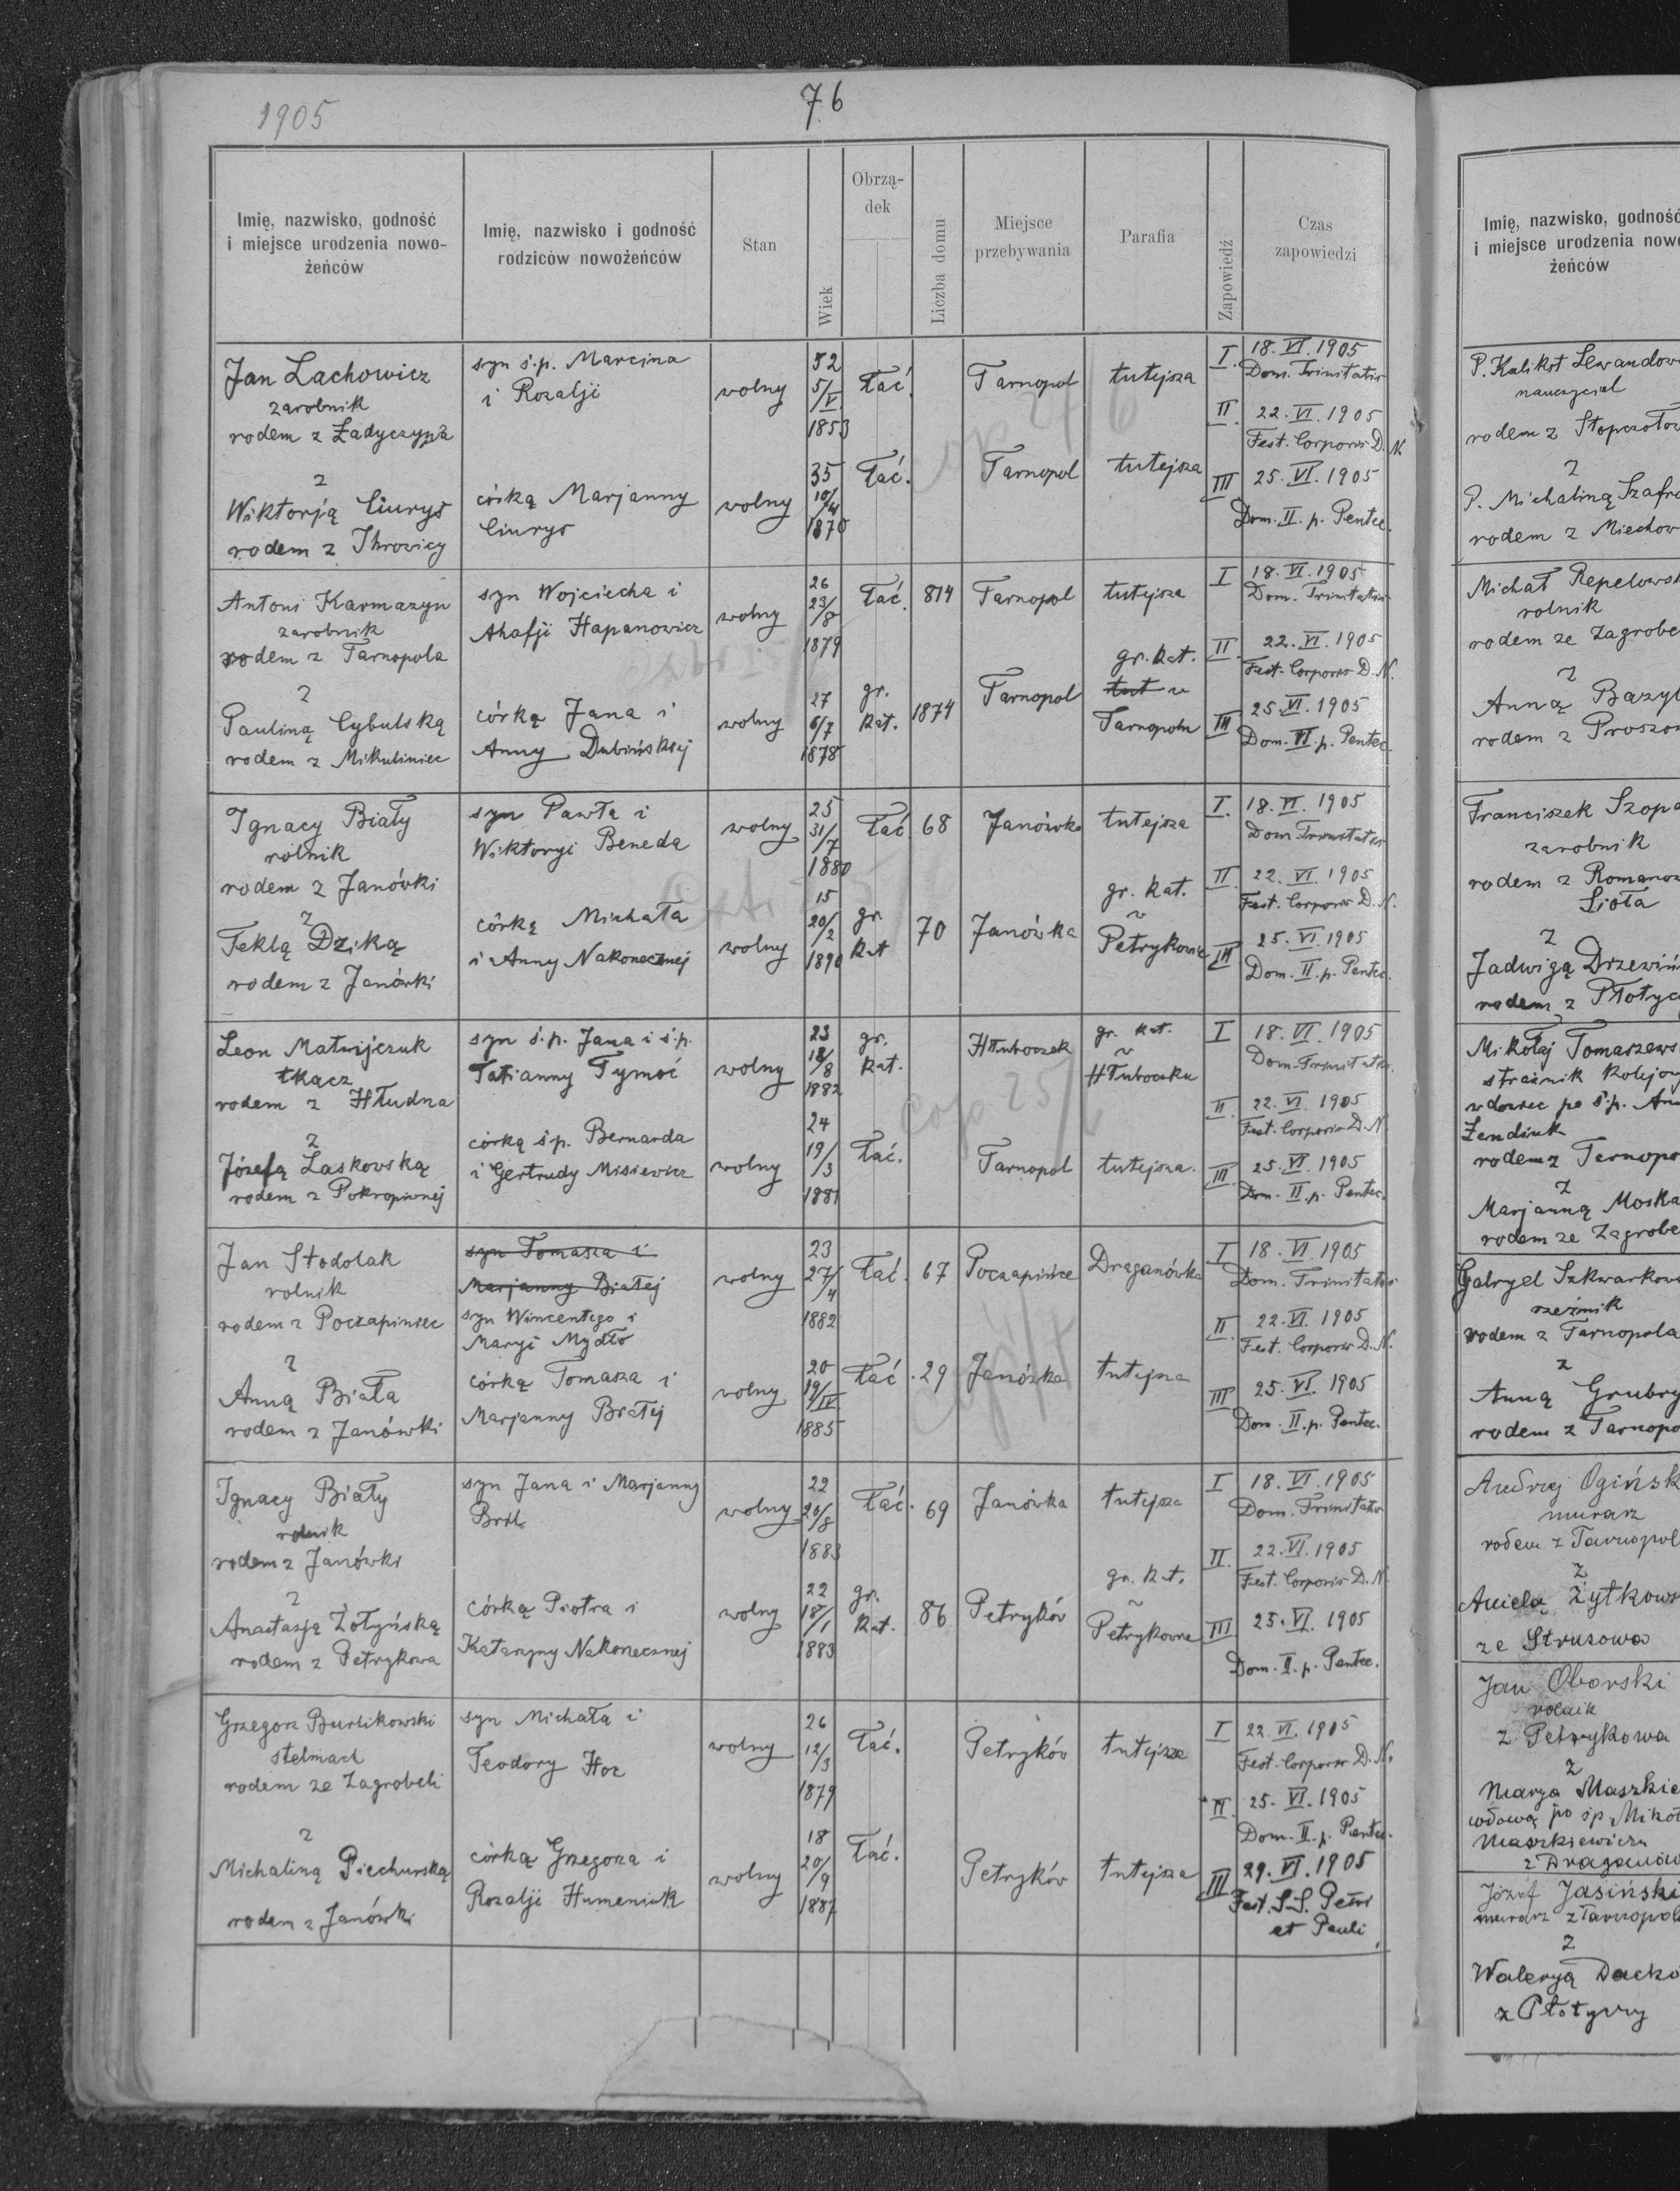 1905
76
Imię, nazwisko, godność
i miejsce urodzenia nowo-
żeńców
Imię, nazwisko i godność
rodziców nowożeńców
Stan
Wiek
Obrzą-
dek
Liczba domu
Miejsce
przebywania
Parafia
Zapowiedź
Czas
zapowiedzi
Jan Lachowicz
zarobnik
rodem z Ładyczyna
z
Wiktorją Ciurys
rodem z Ihrowicy
syn ś.p. Marcina
i Rozalji
córką Marjanny
Ciurys
wolny
wolny
52
5/V
1853
35
10/4
1870
łać.
łać.
Tarnopol
Tarnopol
tutejsza
tutejsza
I. 18. VI. 1905
Dom. Trinitatis
II 22. VI. 1905
Fest. Corporis D. N.
III 25. VI. 1905
Dom. II. p. Pentec.
Antoni Karmazyn
zarobnik
rodem z Tarnopola
z
Pauliną Cybulską
rodem z Mikuliniec
syn Wojciecha i
Ahafji Hapanowicz
córką Jana i
Anny Dubińskiej
wolny
wolny
26
23/8
1879
27
6/7
1878
łać.
gr.
kat.
814
1874
Tarnopol
Tarnopol
tutejsza
gr. kat.
tut w
Tarnopolu
I 18. VI. 1905
Dom. Trinitatis
II 22. VI. 1905
Fest. Corporis D. N.
III 25. VI. 1905
Dom. II. p. Pentec.
Ignacy Biały
rolnik
rodem z Janówki
z
Teklą Dziką
rodem z Janówki
syn Pawła i
Wiktoryi Beneda
córką Michała
i Anny Nakonecznej
wolny
wolny
25
31/7
1880
15
20/2
1890
łać
gr.
kat
68
70
Janówka
Janówka
tutejsza
gr. kat.
w
Petrykowie
I. 18. VI. 1905
Dom. Trinitatis
II 22. VI. 1905
Fest. Corporis D. N.
III 25. VI. 1905
Dom. II. p. Pentec.
Leon Matwijczuk
tkacz
rodem z Hłudna
z
Józefą Laskowską
rodem z Pokropiwnej
syn ś.p. Jana i ś.p.
Tatianny Tymoć
córką ś.p. Bernarda
i Gertrudy Misiewicz
wolny
wolny
23
18/8
1882
24
19/3
1881
gr.
kat.
łać.
Hłuboczek
Tarnopol
gr. kat.
w
Hłuboczku
tutejsza.
I 18. VI. 1905
Dom. Trinitatis.
II 22. VI. 1905
Fest. Corporis D. N.
III 25. VI. 1905
Dom. II. p. Pentec.
Jan Stodolak
rolnik
rodem z Poczapiniec
z
Anną Białą
rodem z Janówki
syn Tomasza i
Marjanny Białej
syn Wincentego i
Maryi Mydło
córką Tomasza i
Marjanny Białej
wolny
wolny
23
27/4
1882
20
19/IV
1885
łać.
łać.
67
29
Poczapińce
Janówka
Draganówka
tutejsza
I 18. VI. 1905
Dom. Trinitatis
II 22. VI. 1905
Fest. Corporis D. N.
III 25. VI. 1905
Dom. II. p. Pentec.
Ignacy Biały
rolnik
rodem z Janówki
z
Anastazją Żołyńską
rodem z Petrykowa
syn Jana i Marjanny
Bril
córką Piotra i
Katarzyny Nakonecznej
wolny
wolny
22
20/8
1883
22
18/1
1883
łać.
gr.
kat.
69
86
Janówka
Petryków
tutejsza
gr. kat.
w
Petrykowie
I 18. VI. 1905
Dom. Trinitatis
II. 22. VI. 1905
Fest. Corporis D. N.
III 25. VI. 1905
Dom. II. p. Pentec.
Grzegorz Burlikowski
stelmach
rodem ze Zagrobeli
z
Michaliną Piechurską
rodem z Janówki
syn Michała i
Teodory Hoc
córką Grzegorza i
Rozalji Humeniuk
wolny
wolny
26
12/3
1879
18
20/9
1887
łać.
łać.
Petryków
Petryków
tutejsza
tutejsza
I 22. VI. 1905
Fest. Corporis D. N.
II 25. VI. 1905
Dom. II. p. Pentec.
III 29. VI. 1905
Fest. S.S. Petri
et Pauli
Imię, nazwisko, godność
i miejsce urodzenia nowo
żeńców
P. Kalikst Lewandow
nauczyciel
rodem z
z
P. Michaliną Szafra
rodem z Miechow
Michał Repelowsk
rolnik
rodem ze Zagrobe
z
Anną Bazyl
rodem z Proszo
Franciszek Szopa
zarobnik
rodem z Romanow
Sioła
z
Jadwigą Drzewiń
rodem z Płotyc
Mikołaj Tomaszews
strażnik kolejow
wdowiec po ś.p. An
Żendziuk
rodem z Tarnopo
z
Marjanną Moska
rodem ze Zagrobe
Gabryel Szkwarkow
rzeźnik
rodem z Tarnopola
z
Anną Grubry
rodem z Tarnopo
Andrzej Ogińsk
murarz
rodem z Tarnopol
z
Anielą Żytkows
ze Strusowa
Jan Oborski
rolnik
z Petrykowa
z
Marya Maszkie
wdową po śp. Mikoł
Maszkiewiczu
z Draganów
Józef Jasiński
murarz z Tarnopol
z
Waleryą Dacko
z Płotyczy